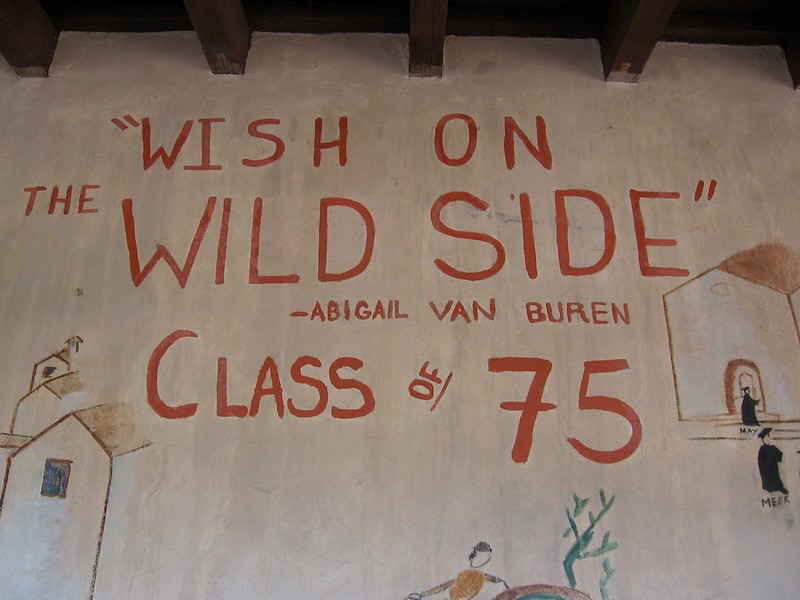 "WISH ON
THE WILD SIDE"
-ABIGAIL VAN BUREN
CLASS OF 75
MAY
MEEK